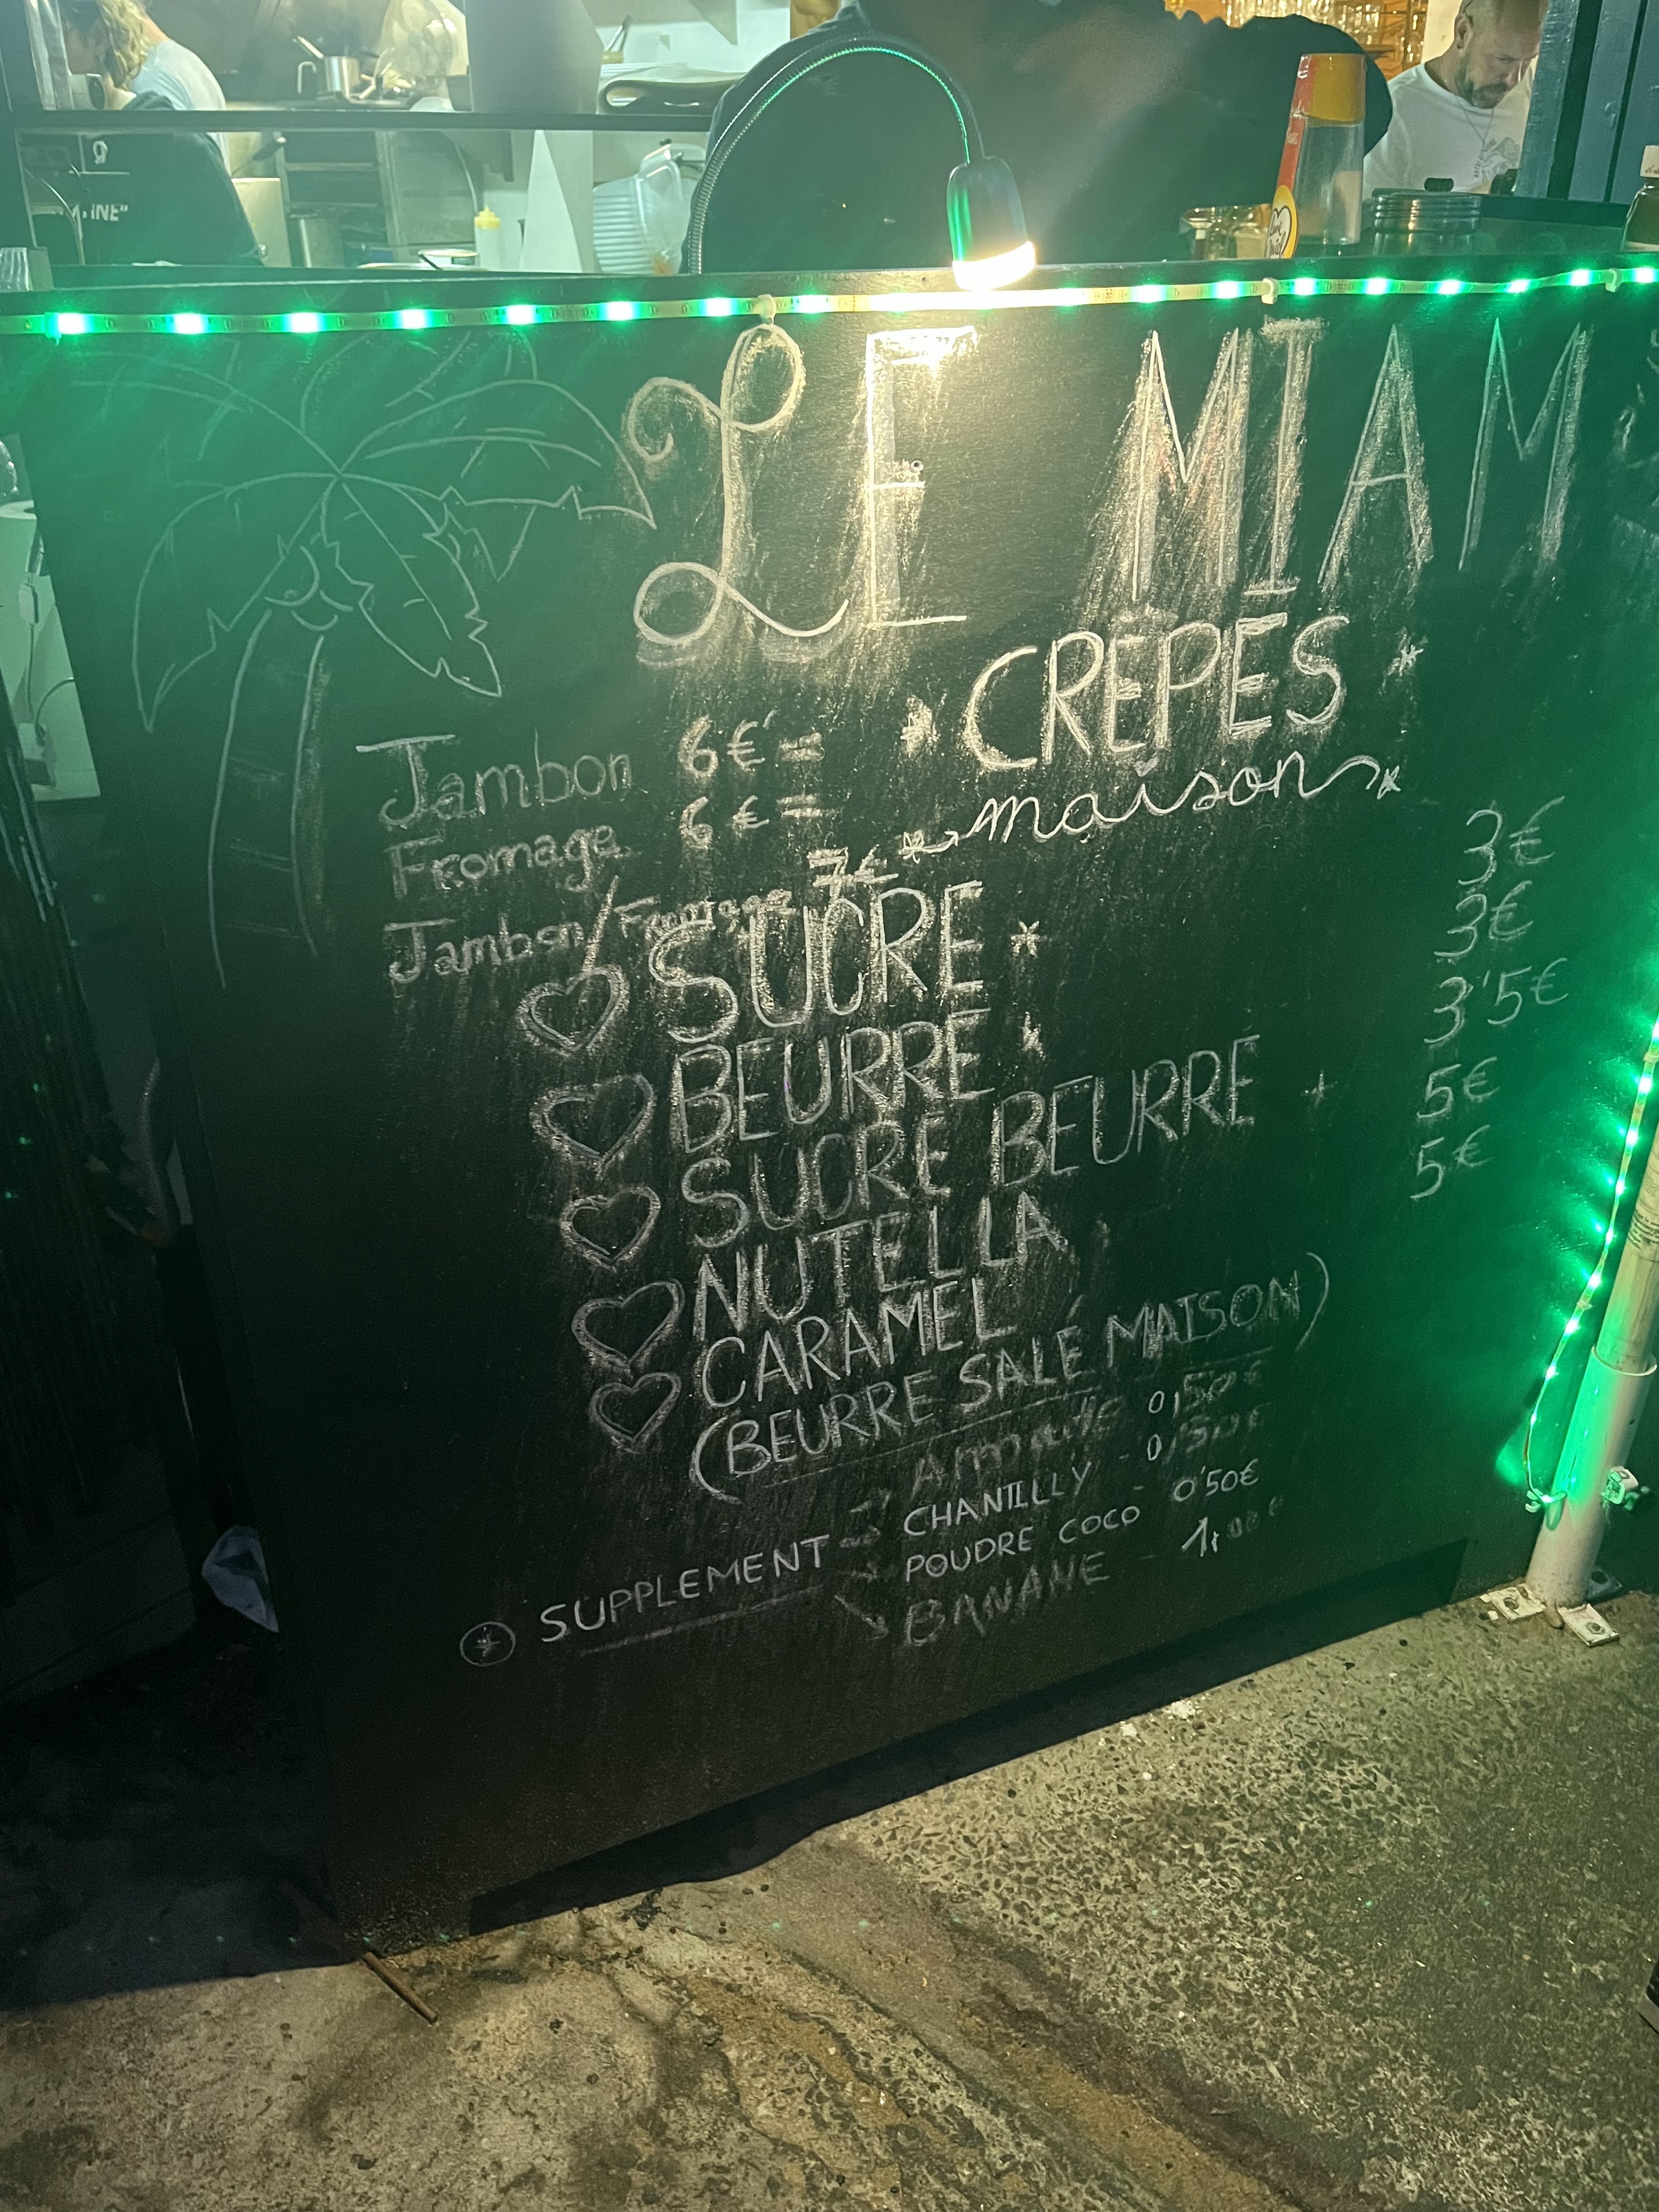 LE MIAM
CRÊPES
maison
Jambon 6€
Fromage 6€
Jambon/Fromage 7€
SUCRE 3€
BEURRE 3€
SUCRE BEURRE 3'5€
NUTELLA 5€
CARAMEL 5€
(BEURRE SALÉ MAISON)
+ SUPPLEMENT
Amande 0,50€
CHANTILLY - 0,50€
POUDRE COCO - 0'50€
BANANE - 1,00€